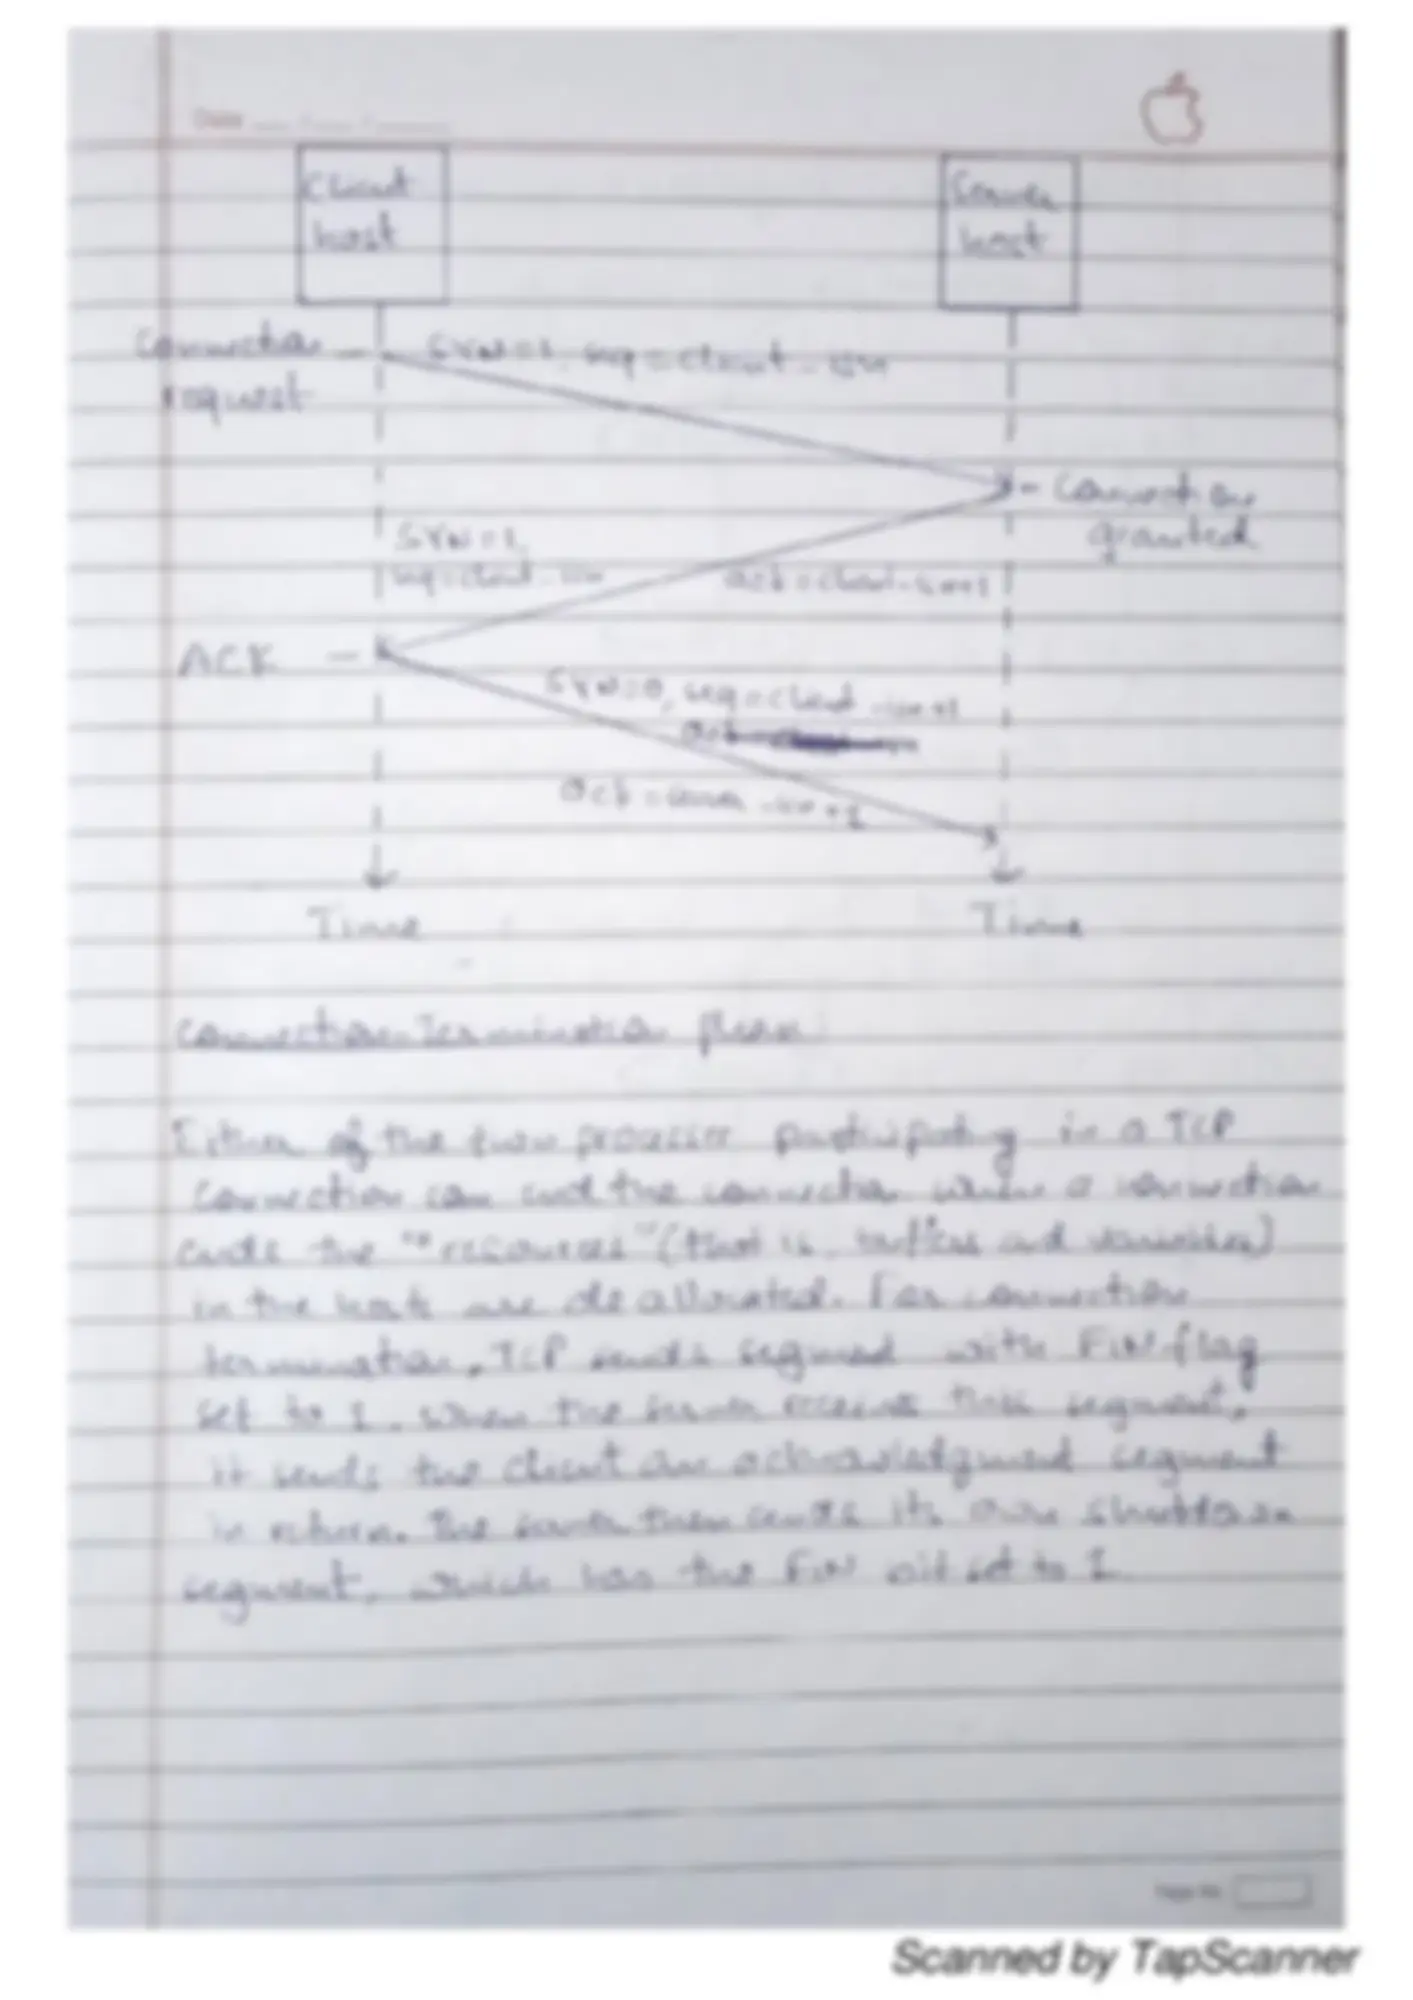 Date
Client
host
Server
host
Connection
request
SYN=1, seq=client-isn
Connection
granted
SYN=1,
seq=client-isn
ack=client-isn+1
ACK
SYN=0, seq=client-isn+1
ack
ack=server-isn+1
Time
Time
Connection-Termination phase
Either of the two processes participating in a TCP
connection can end the connection when a connection
ends the "resources" (that is, buffers and variables)
in the hosts are deallocated. For connection
termination, TCP sends segment with FIN flag
set to 1. When the server receives this segment,
it sends the client an acknowledgment segment
in return. The server then sends its own shutdown
segment, which has the FIN bit set to 1.
Page No.
Scanned by TapScanner